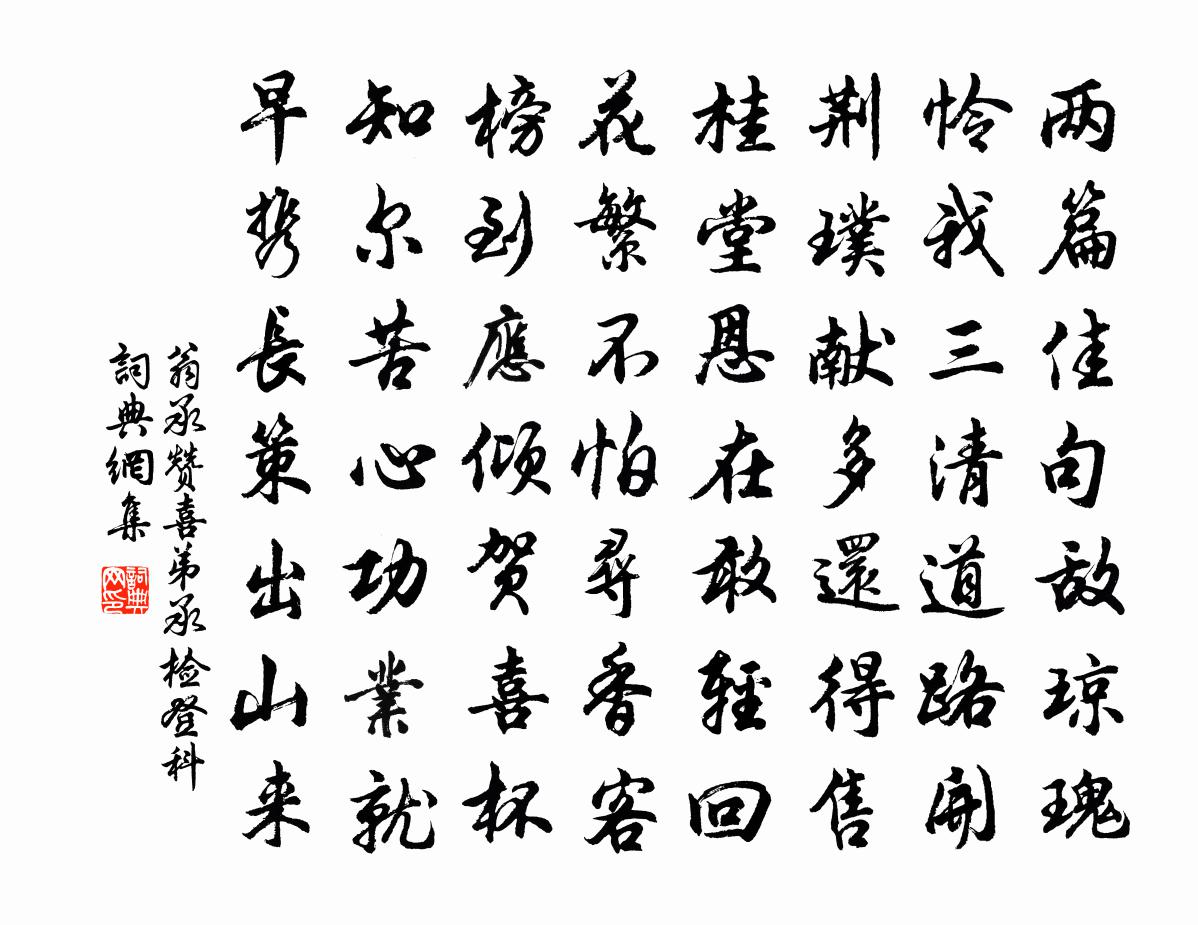 两篇佳句敌琼瑰
怜我三清道路開
荆璞献多還得售
桂堂恩在敢輕回
花繁不怕尋香客
榜到應倾贺喜杯
知尔苦心功業就
早携長策出山来
翁承赞喜弟承检登科
詞典網集
詞典网印